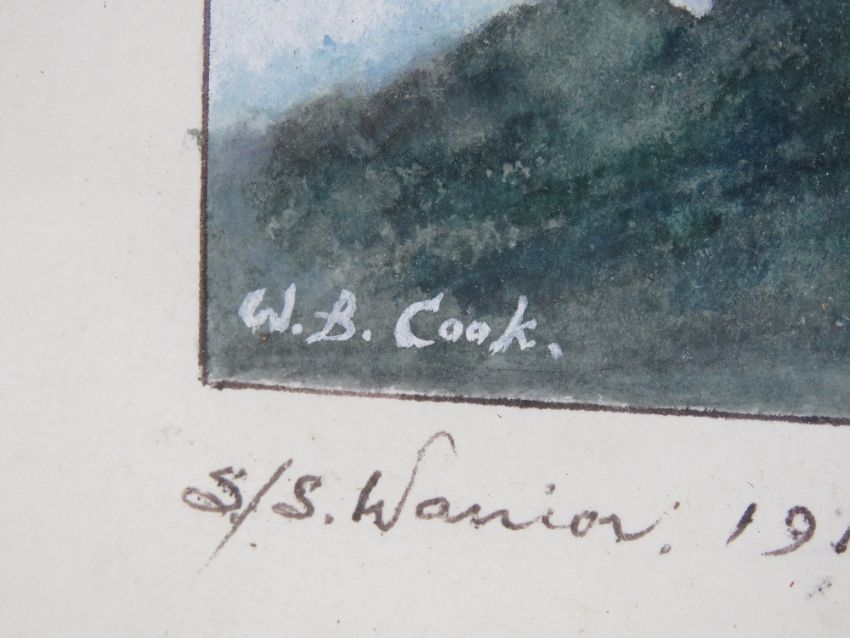 W. B. Cook.
S/S. Warrior. 191